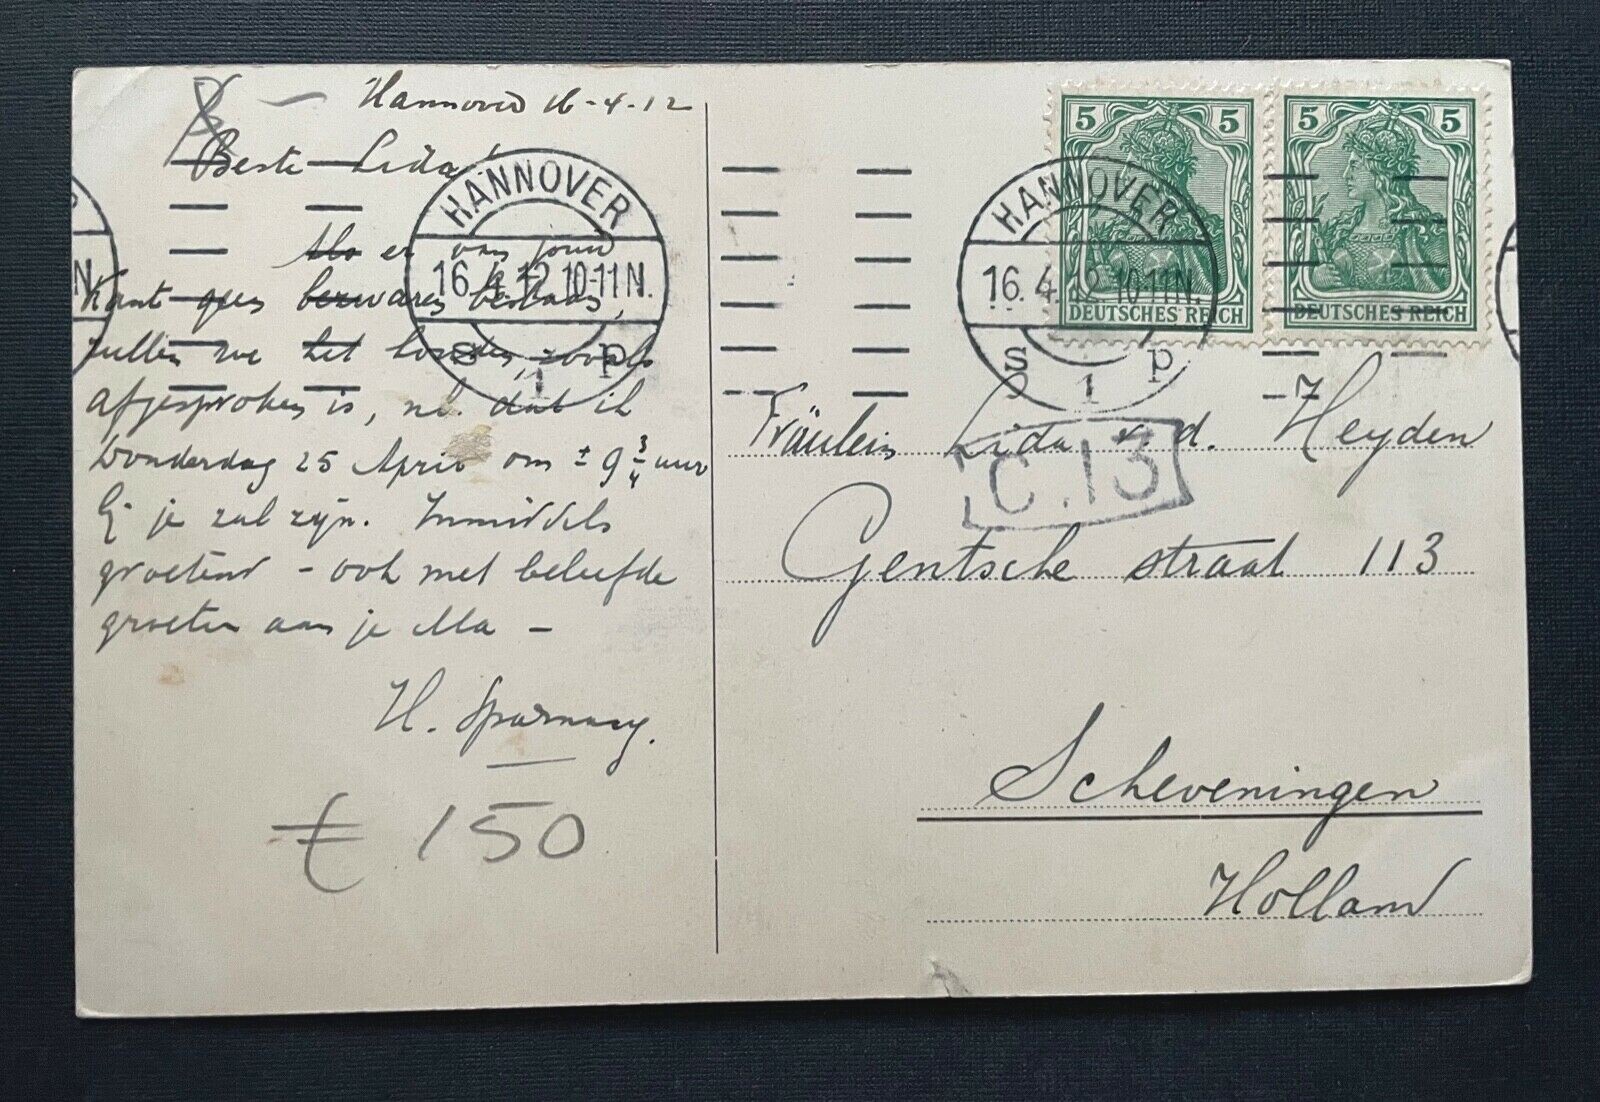 Hannover 16-4-12
Beste Lida!
Als er van jouw
Kant geen bezwaren bestaan,
zullen we het houden, zooals
afgesproken is, nl. dat ik
Donderdag 25 April om ± 9 3/4 uur
bij je zal zijn. Inmiddels
groetend - ook met beleefde
groeten aan je Ma -
H. Sparnaay.
150
HANNOVER
16.4.12.10-11N.
S 1 p
HANNOVER
16.4.12.10-11N.
S 1 p
5 5
DEUTSCHES REICH
5 5
DEUTSCHES REICH
Fräulein Lida v. d. Heyden
C.13
Gentsche straat 113
Scheveningen
Holland